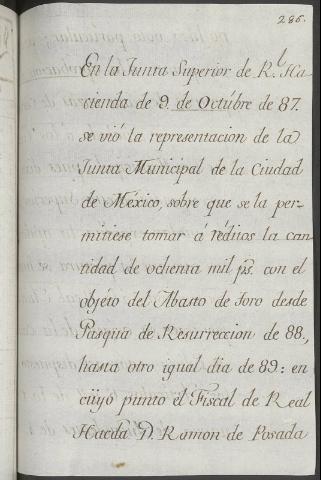 286.
En la Junta Superior de R.l Ha-
cienda de 9 de Octúbre de 87.
se vió la representacion de la
Junta Municipal de la Ciudad
de México, sobre que se la per-
mitiese tomar á réditos la can-
tidad de ochenta mil ps. con el
objéto del Abasto de Toro desde
Pasqua de Resurreccion de 88.,
hasta otro igual dia de 89: en
cúyo punto él Fiscal de Real
Hacda D. Ramon de Posada